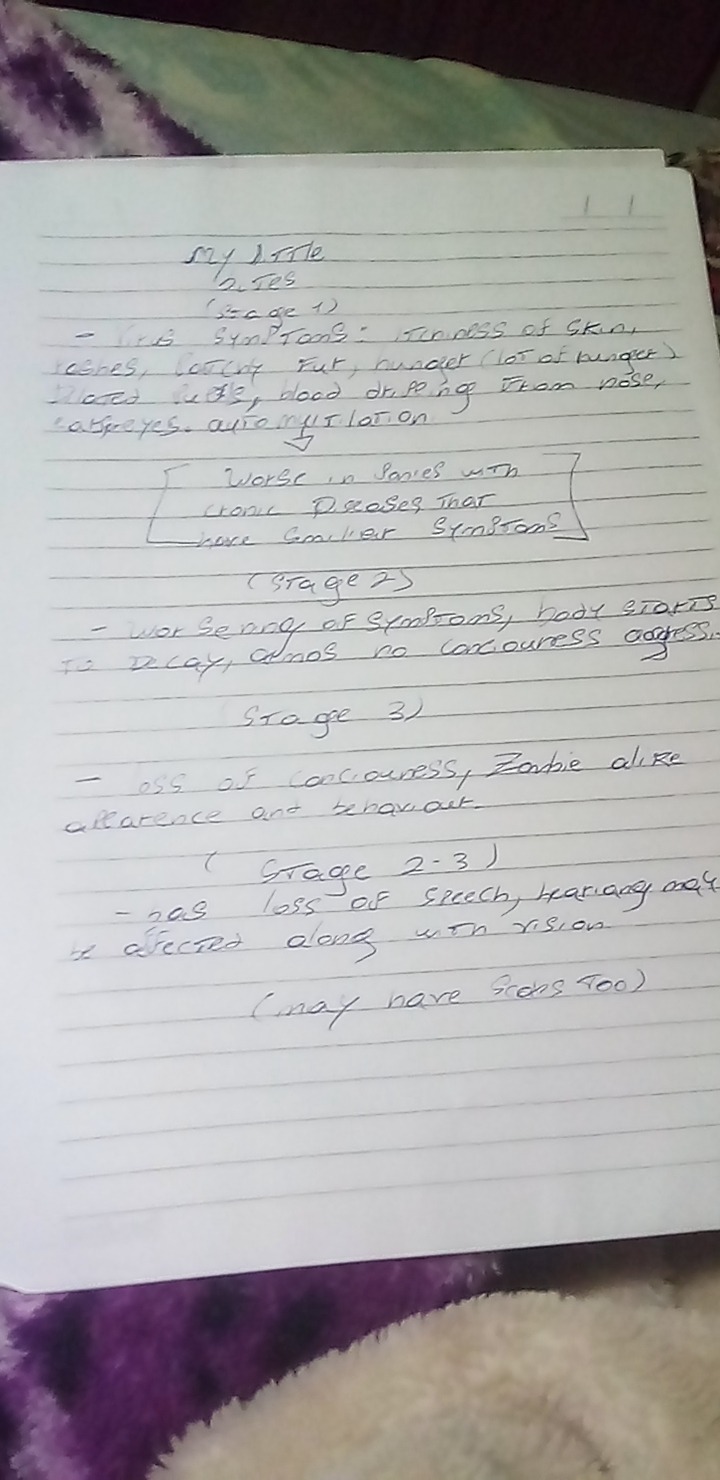 My little
Bites
(Stage 1)
- Virus symptoms: itchiness of skin,
rashes, fur, hunger (lot of hunger)
Dilated, blood driping from nose,
eyes. auto mutilation
Worse in Ponies with
cronic Diseases That
have similier symptoms
(Stage 2)
- worsening of symptoms, body starts
To Decay, almos no conciouress
Stage 3)
- loss of conciouress, Zombie alike
afparence and behaviour.
( Stage 2-3)
- has loss of speech, may
be affected along with vision
(may have scabs too)